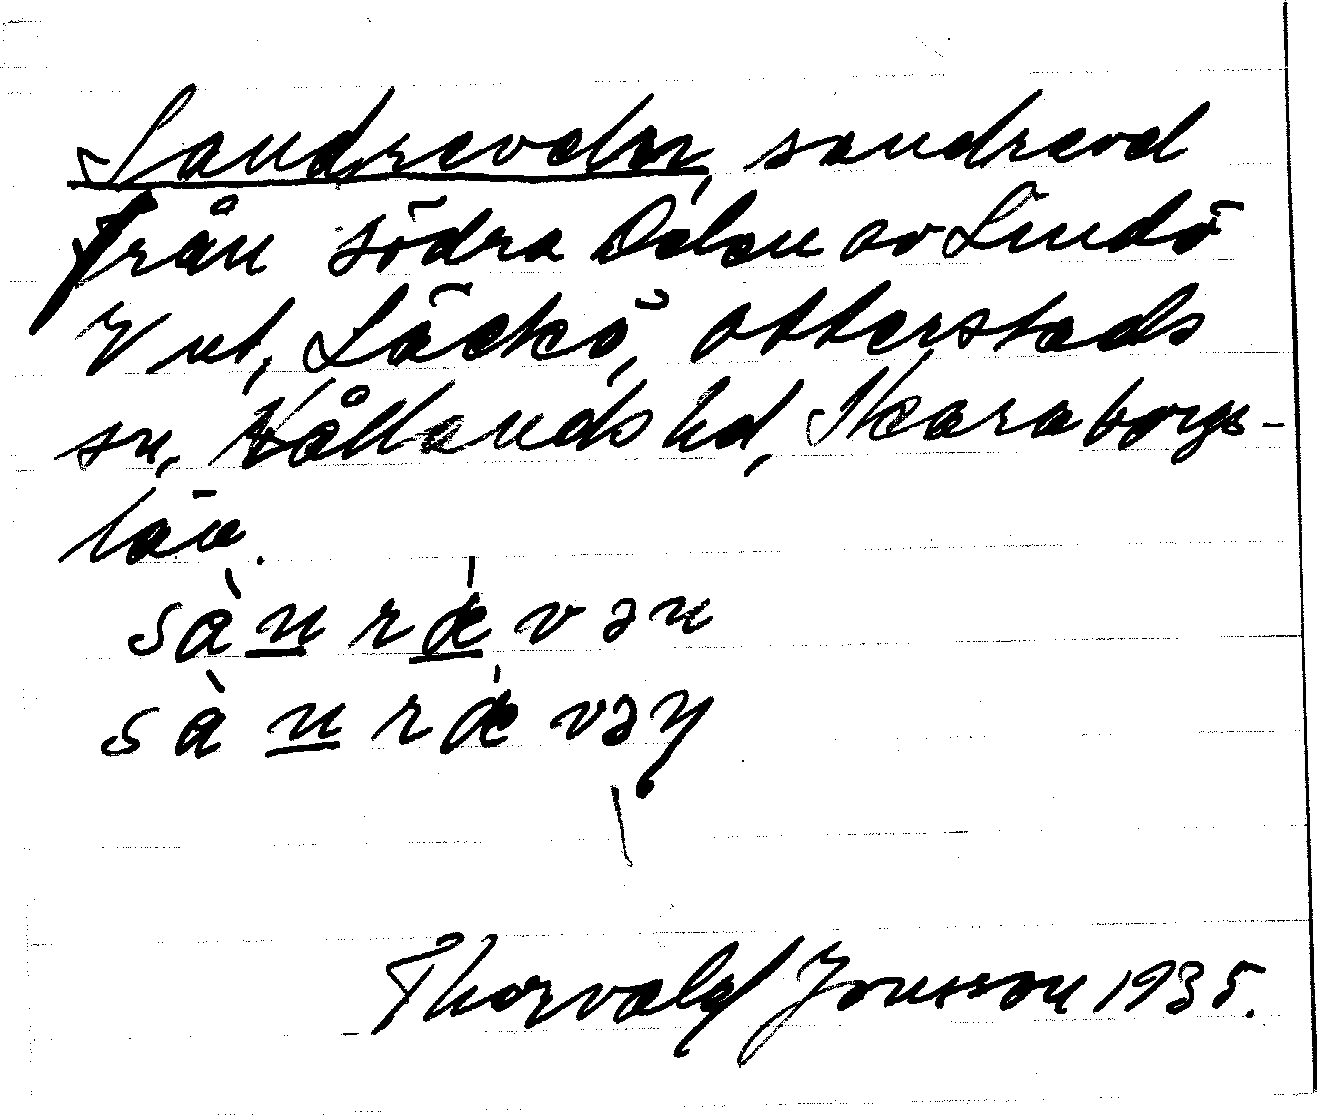 Sandrevden, sandrevd
från södra Delen av Lindö
V ut, Läckö, Otterstads
sn, Kållands hd, Skaraborgs-
län.
sànrǽvən
sànrǽvəŋ
Thorvald Jonsson 1935.